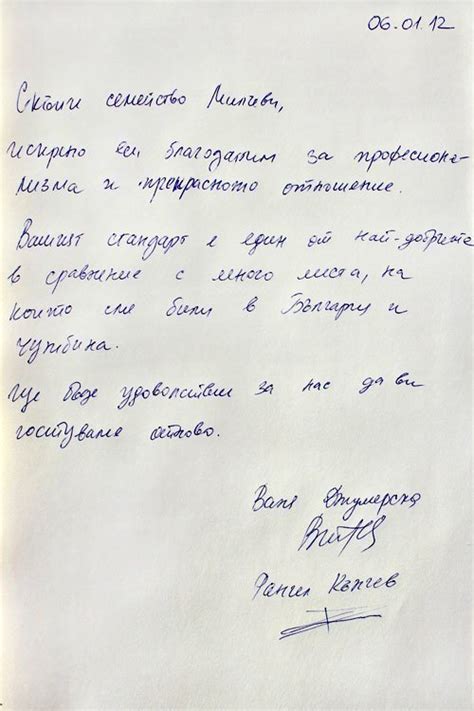 06.01.12
Скъпи семейство Милчеви,
искрено Ви благодарим за професиона-
лизма и прекрасното отношение.
Вашият стандарт е един от най-добрите
в сравнение с много места, на
които сме били в България и
чужбина.
Ще бъде удоволствие за нас да ви
гостуваме отново.
Ваня Джумерска
Рангел Кънчев